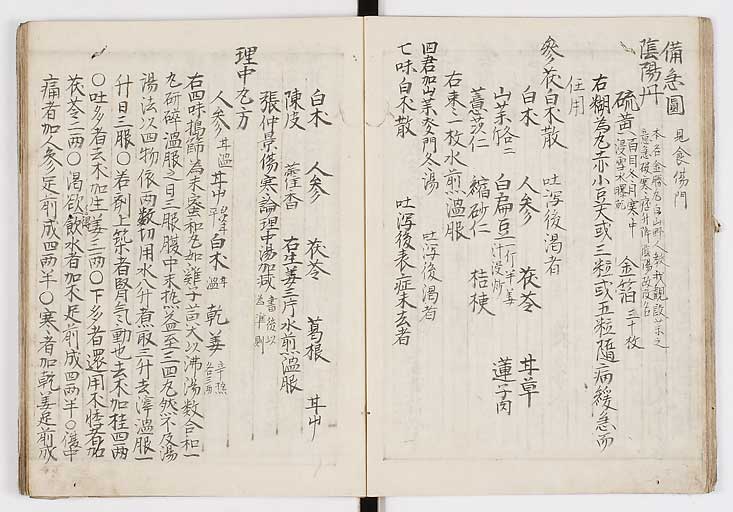 備急圓 見食傷門
陰陽丹
硫黄 金箔 三十枚
右糊為丸赤小豆大或三粒或五粒隨病緩急而
任用
參茯白朮散 吐瀉後渇者
白朮 人參 茯苓 甘草
山茱 白扁豆 蓮子肉
薏苡仁 縮砂仁 桔梗
右棗二枚水煎温服
四君加山茱麥門冬湯 吐瀉後渇者
七味白朮散 吐瀉後表症未去者
白朮 人參 茯苓 葛根 甘艸
陳皮 藿香 右生姜三片水煎温服
張仲景傷寒論理中湯加减
理中丸方
人參 甘艸 白朮 乾姜
右四味搗篩為末蜜和丸如雞子黄大以沸湯数合和一
丸研碎温服之日三服腹中未熱益至三四丸然不及湯
湯法以四物依両数切用水八升煮取三升去滓温服一
升日三服〇若剤上築者腎氣動也去朮加桂四両
〇吐多者去朮加生姜三両〇下多者還用朮悸者加
茯苓二両〇渇欲飲水者加朮足前成四両半〇腹中
痛者加人參足前成四両半〇寒者加乾姜足前成